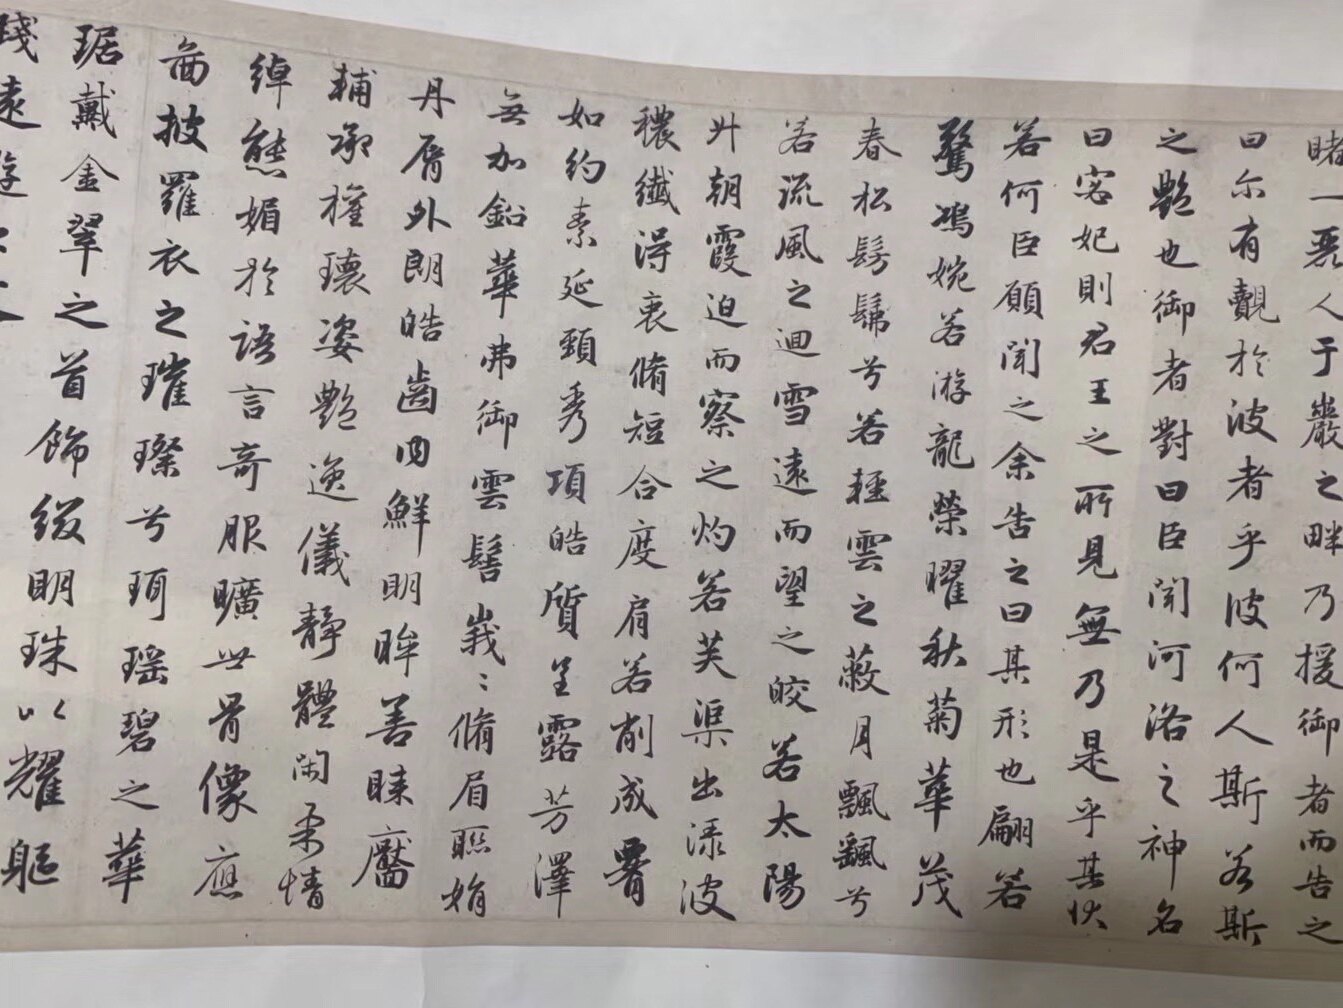 睹一麗人于巖之畔乃援御者而告之
曰尔有覿於彼者乎彼何人斯若斯
之艷也御者對曰臣聞河洛之神名
曰宓妃則君王之所見無乃是乎其狀
若何臣願聞之余告之曰其形也翩若
驚鴻婉若游龍榮曜秋菊華茂
春松髣髴兮若輕雲之蔽月飄飖兮
若流風之迴雪遠而望之皎若太陽
升朝霞迫而察之灼若芙渠出淥波
穠纖得衷脩短合度肩若削成署
如約素延頸秀項皓質呈露芳澤
無加鉛華弗御雲髻峩〻脩眉聯娟
丹脣外朗皓齒內鮮明眸善睞靨
輔承權瓌姿艷逸儀靜體閑柔情
綽態媚於語言奇服曠世骨像應
啚披羅衣之璀璨兮珥瑤碧之華
琚戴金翠之首飾綴明珠以耀軀
踐遠遊之文